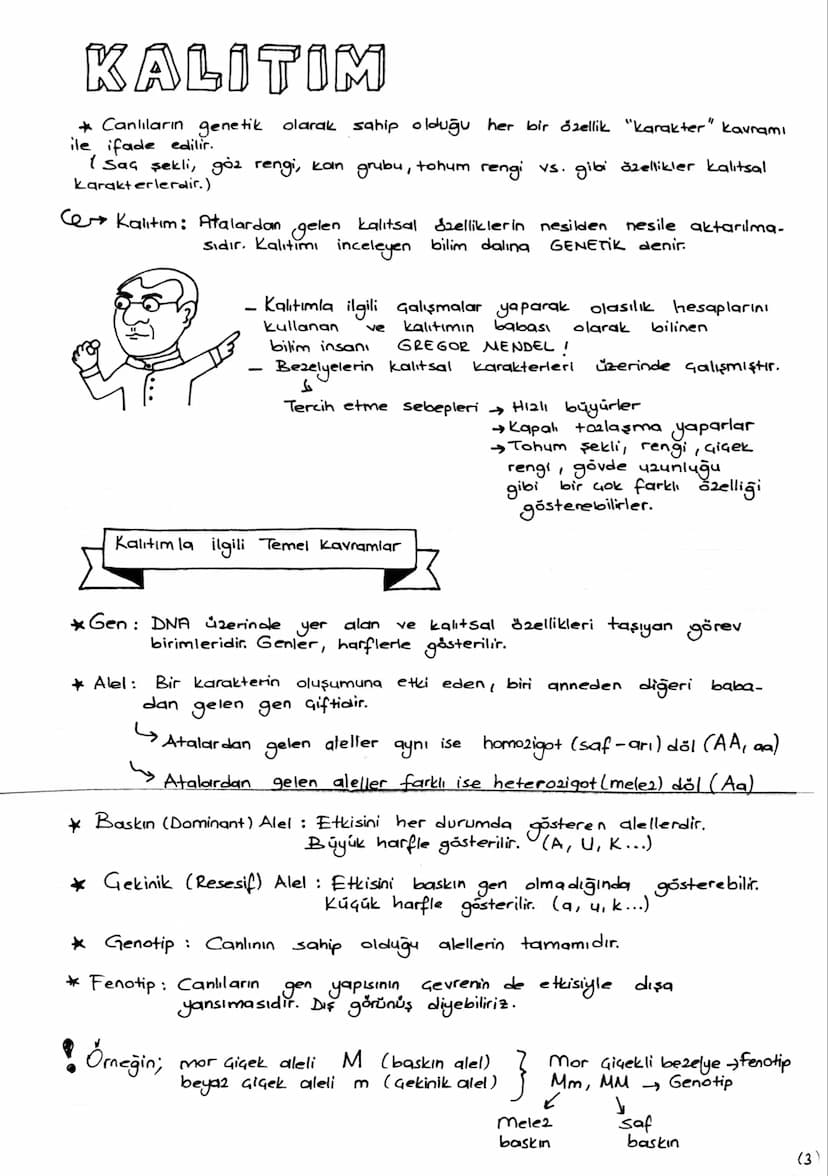 KALITIM
* Canlıların genetik olarak sahip olduğu her bir özellik "karakter" kavramı
ile ifade edilir.
(Saç şekli, göz rengi, kan grubu, tohum rengi vs. gibi özellikler kalıtsal
karakterlerdir.)
→ Kalıtım: Atalardan gelen kalıtsal özelliklerin nesilden nesile aktarılma-
sıdır. Kalıtımı inceleyen bilim dalına GENETİK denir.
– Kalıtımla ilgili çalışmalar yaparak olasılık hesaplarını
kullanan ve kalıtımın babası olarak bilinen
bilim insanı GREGOR MENDEL !
– Bezelyelerin kalıtsal karakterleri üzerinde çalışmıştır.
Tercih etme sebepleri → Hızlı büyürler
→ Kapalı tozlaşma yaparlar
→ Tohum şekli, rengi, çiçek
rengi, gövde uzunluğu
gibi bir çok farklı özelliği
gösterebilirler.
Kalıtımla ilgili Temel Kavramlar
* Gen : DNA üzerinde yer alan ve kalıtsal özellikleri taşıyan görev
birimleridir. Genler, harflerle gösterilir.
* Alel : Bir karakterin oluşumuna etki eden, biri anneden diğeri baba-
dan gelen gen çiftidir.
↳ Atalardan gelen aleller aynı ise homozigot (saf-arı) döl (AA, aa)
↳ Atalardan gelen aleller farklı ise heterozigot (melez) döl (Aa)
* Baskın (Dominant) Alel : Etkisini her durumda gösteren alellerdir.
Büyük harfle gösterilir. (A, U, K...)
* Çekinik (Resesif) Alel : Etkisini baskın gen olmadığında gösterebilir.
Küçük harfle gösterilir. (a, u, k...)
* Genotip : Canlının sahip olduğu alellerin tamamıdır.
* Fenotip : Canlıların gen yapısının çevrenin de etkisiyle dışa
yansımasıdır. Dış görünüş diyebiliriz.
! Örneğin; mor çiçek aleli M (baskın alel) } Mor çiçekli bezelye → fenotip
beyaz çiçek aleli m (çekinik alel) } Mm, MM → Genotip
melez saf
baskın baskın
(3)